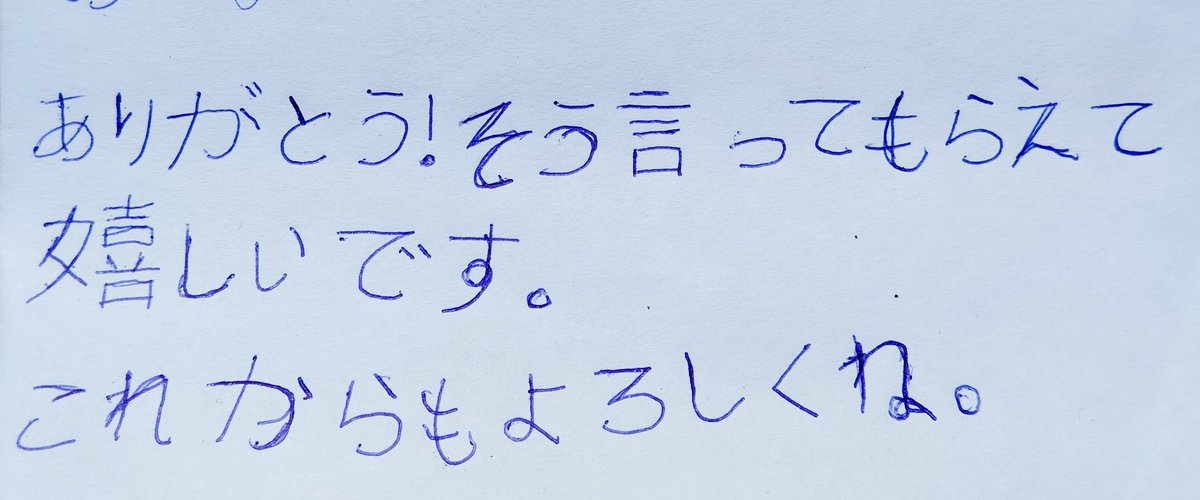 ありがとう!そう言ってもらえて
嬉しいです。
これからもよろしくね。